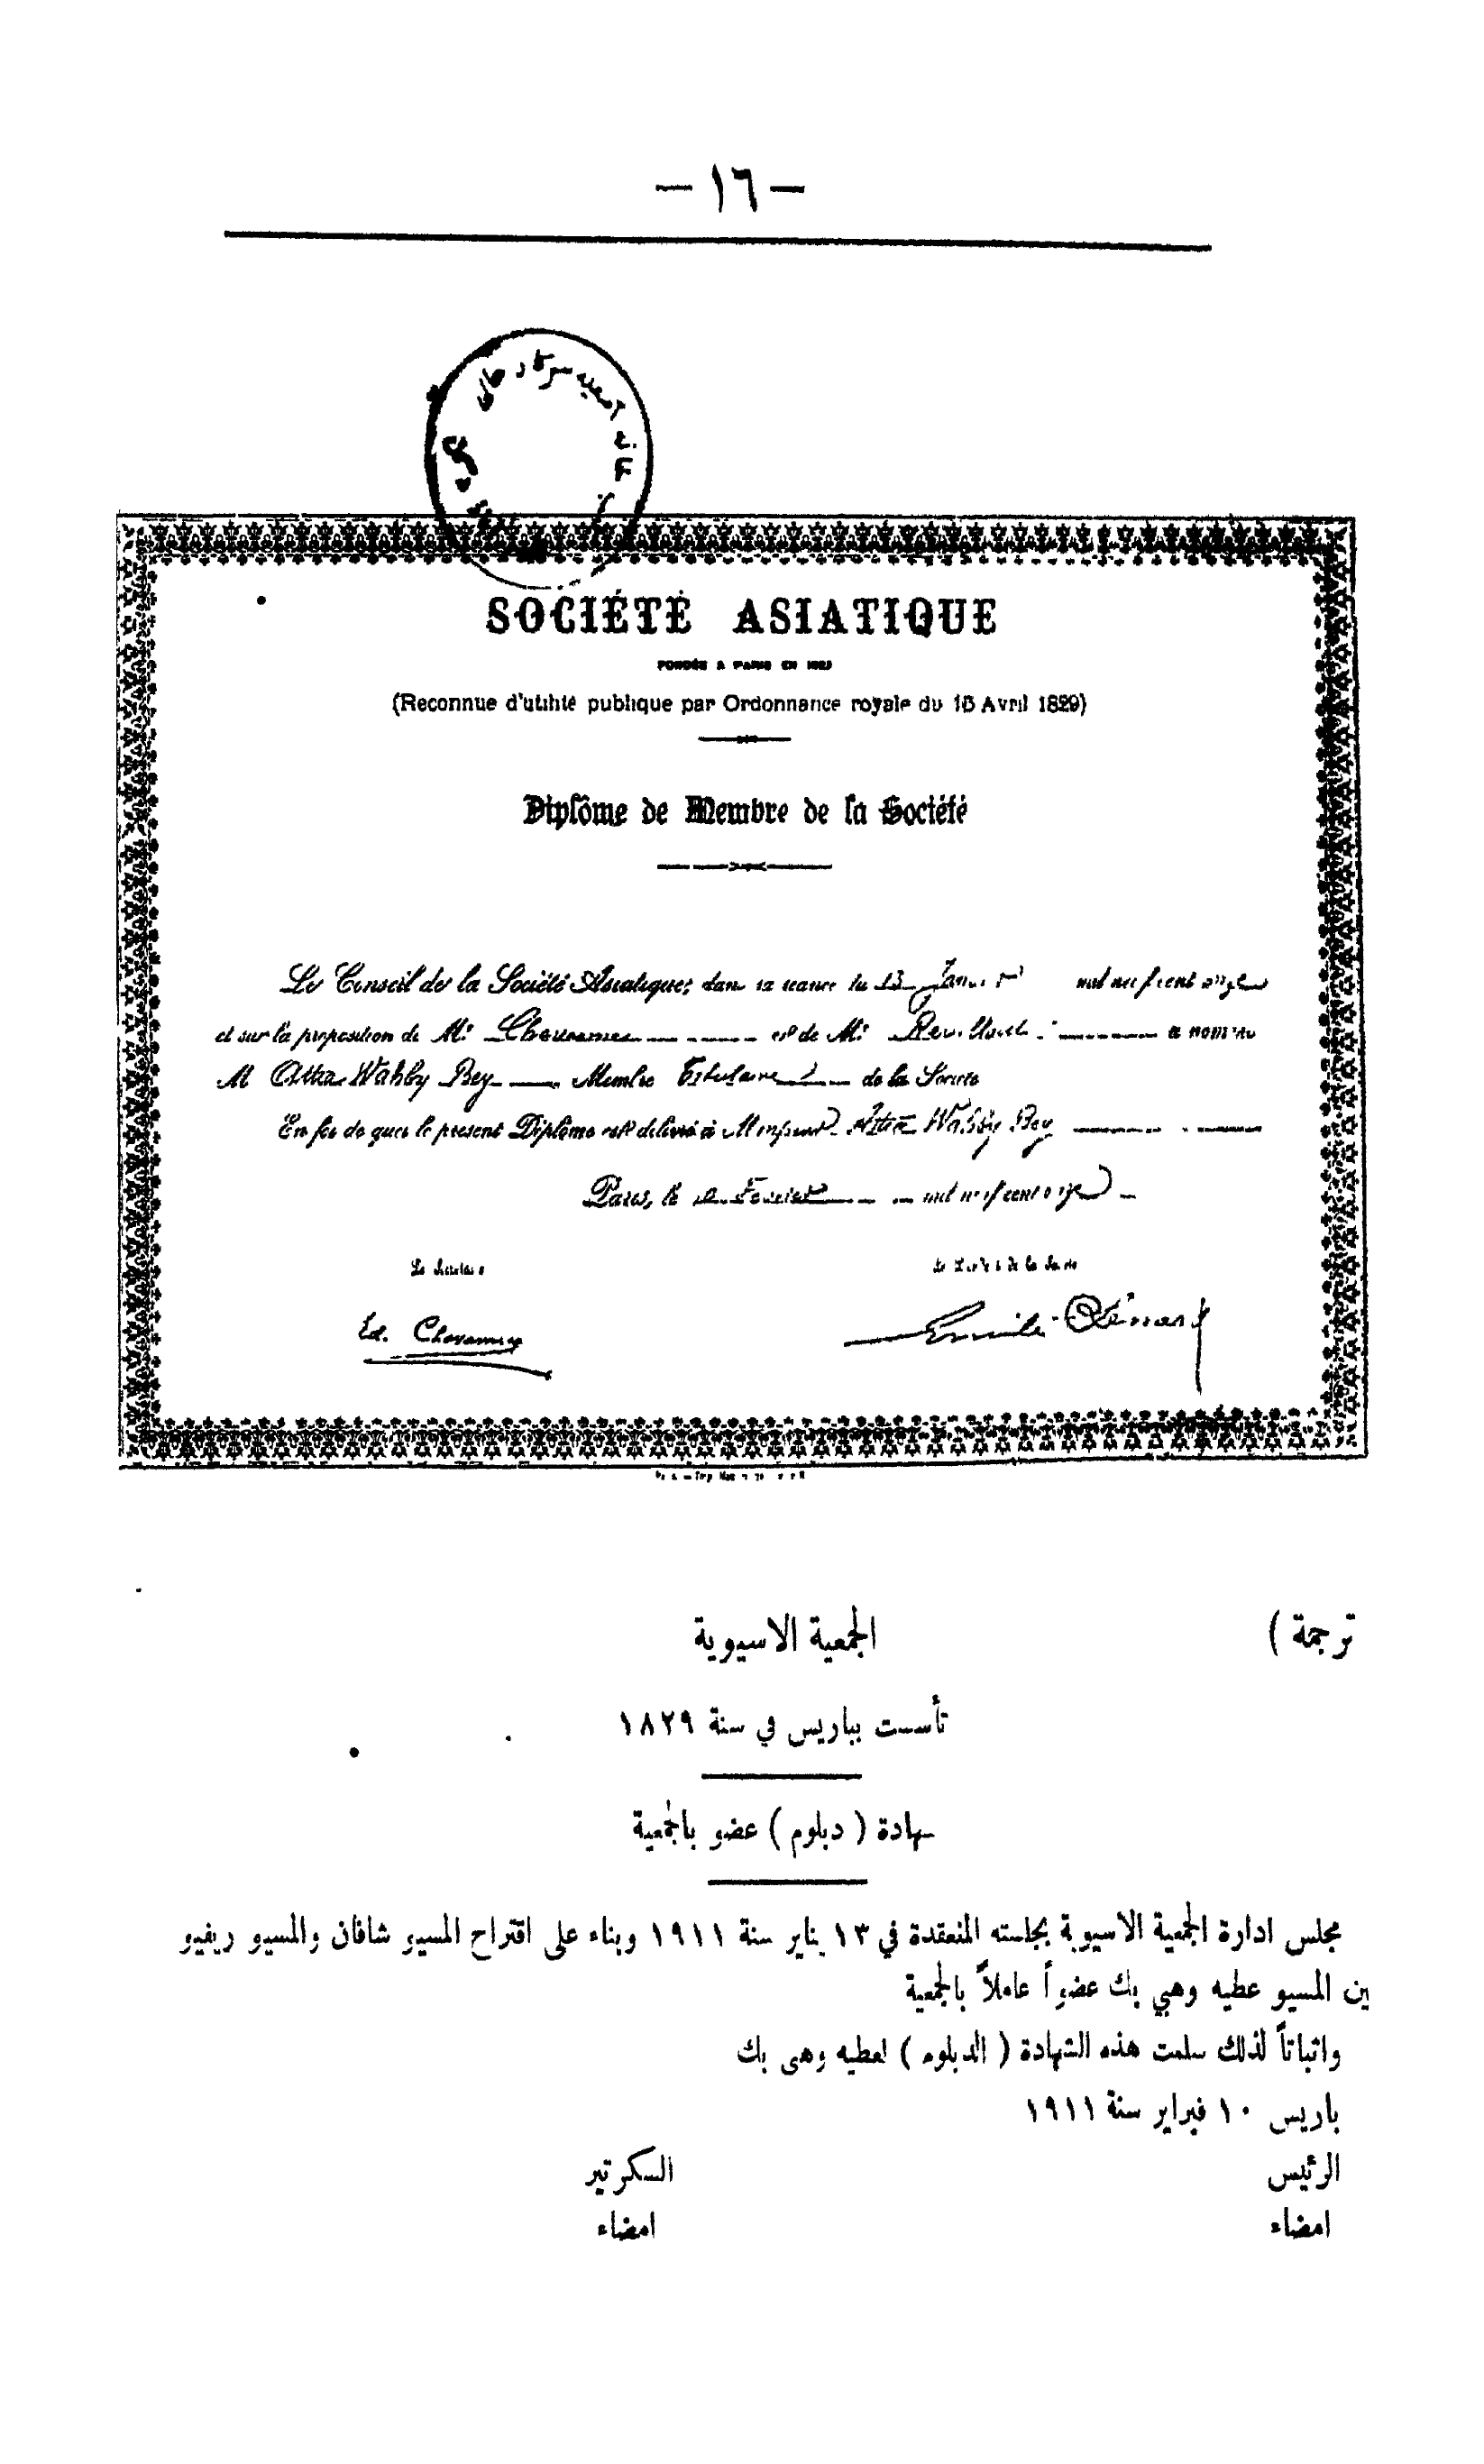 — ١٦ —
آصفيه سركار عالى
SOCIÉTÉ ASIATIQUE
FONDÉE A PARIS EN
(Reconnue d'utilité publique par Ordonnance royale du 15 Avril 1829)
Diplôme de Membre de la Société
Le Conseil de la Société Asiatique, dans sa séance du 13 Janvier mil neuf cent onze
et sur la proposition de Mr. Chavannes et de Mr. Revillout a nommé
M Attia Wahby Bey Membre Titulaire de la Société
En foi de quoi le présent Diplôme est délivré à Monsieur Attia Wahby Bey
Paris, le 10 Février mil neuf cent onze
Le Secrétaire
Le Président de la Société
Ed. Chavannes
Emile Sénart
ترجمة )
الجمعية الاسيوية
تأسست بباريس في سنة ١٨٢٩
شهادة ( دبلوم ) عضو بالجمعية
مجلس ادارة الجمعية الاسيوية بجلسته المنعقدة في ١٣ يناير سنة ١٩١١ وبناء على اقتراح المسيو شافان والمسيو ريفيو
ين المسيو عطيه وهبي بك عضواً عاملاً بالجمعية
واثباتاً لذلك سلمت هذه الشهادة ( الدبلوم ) لعطيه وهبى بك
باريس ١٠ فبراير سنة ١٩١١
الرئيس السكرتير
امضاء امضاء